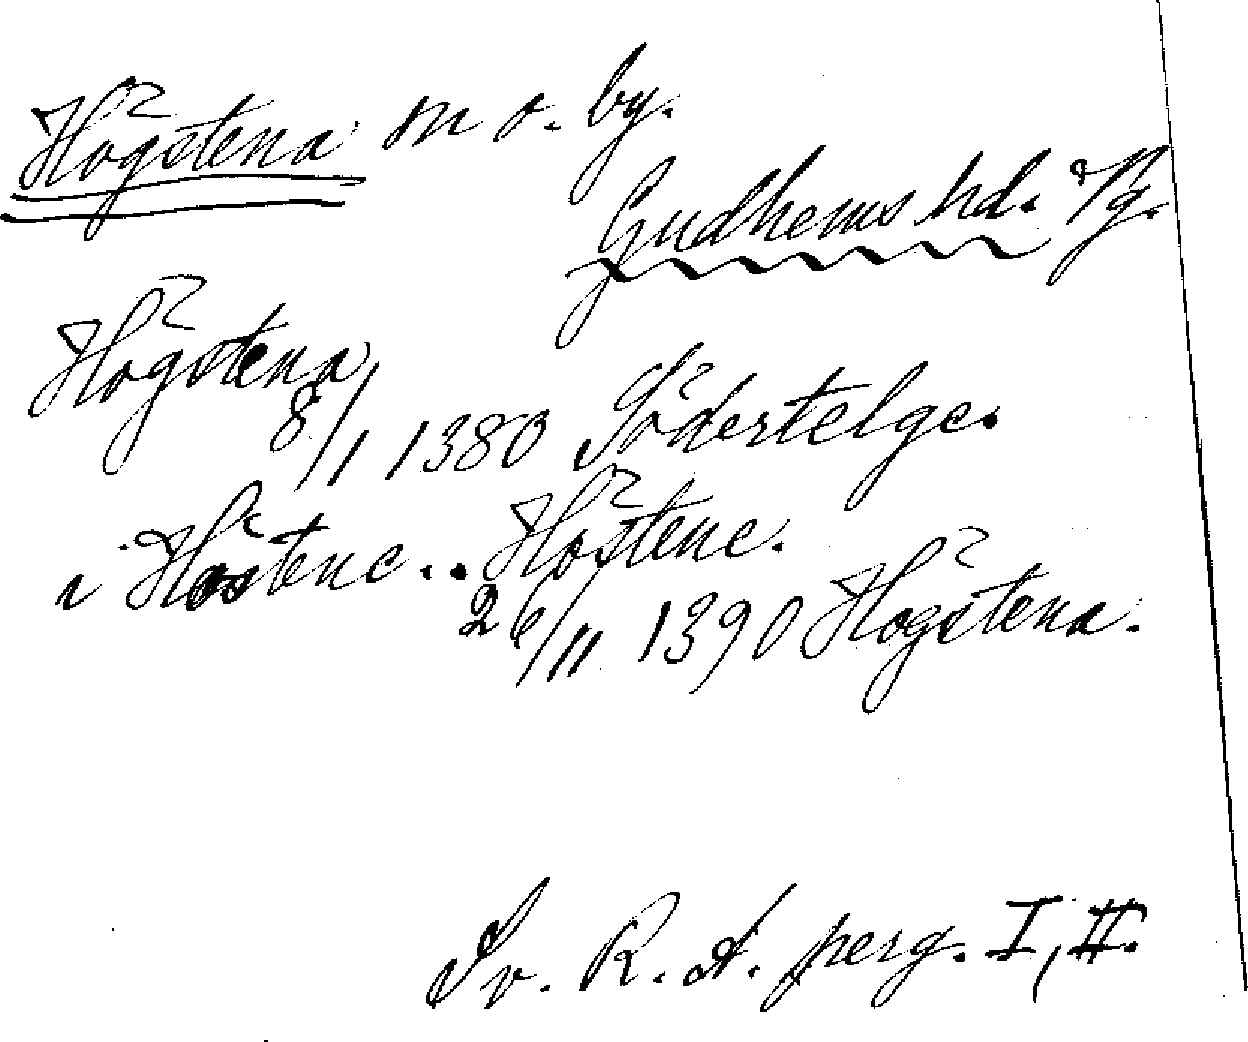 Högstena sn o. by.
Gudhems hd. Vg.
Högstena
8/1 1380 Södertelge.
i Höstene.. Höstene.
26/11 1390 Högstena.
Sv. R. A. perg. I, II.